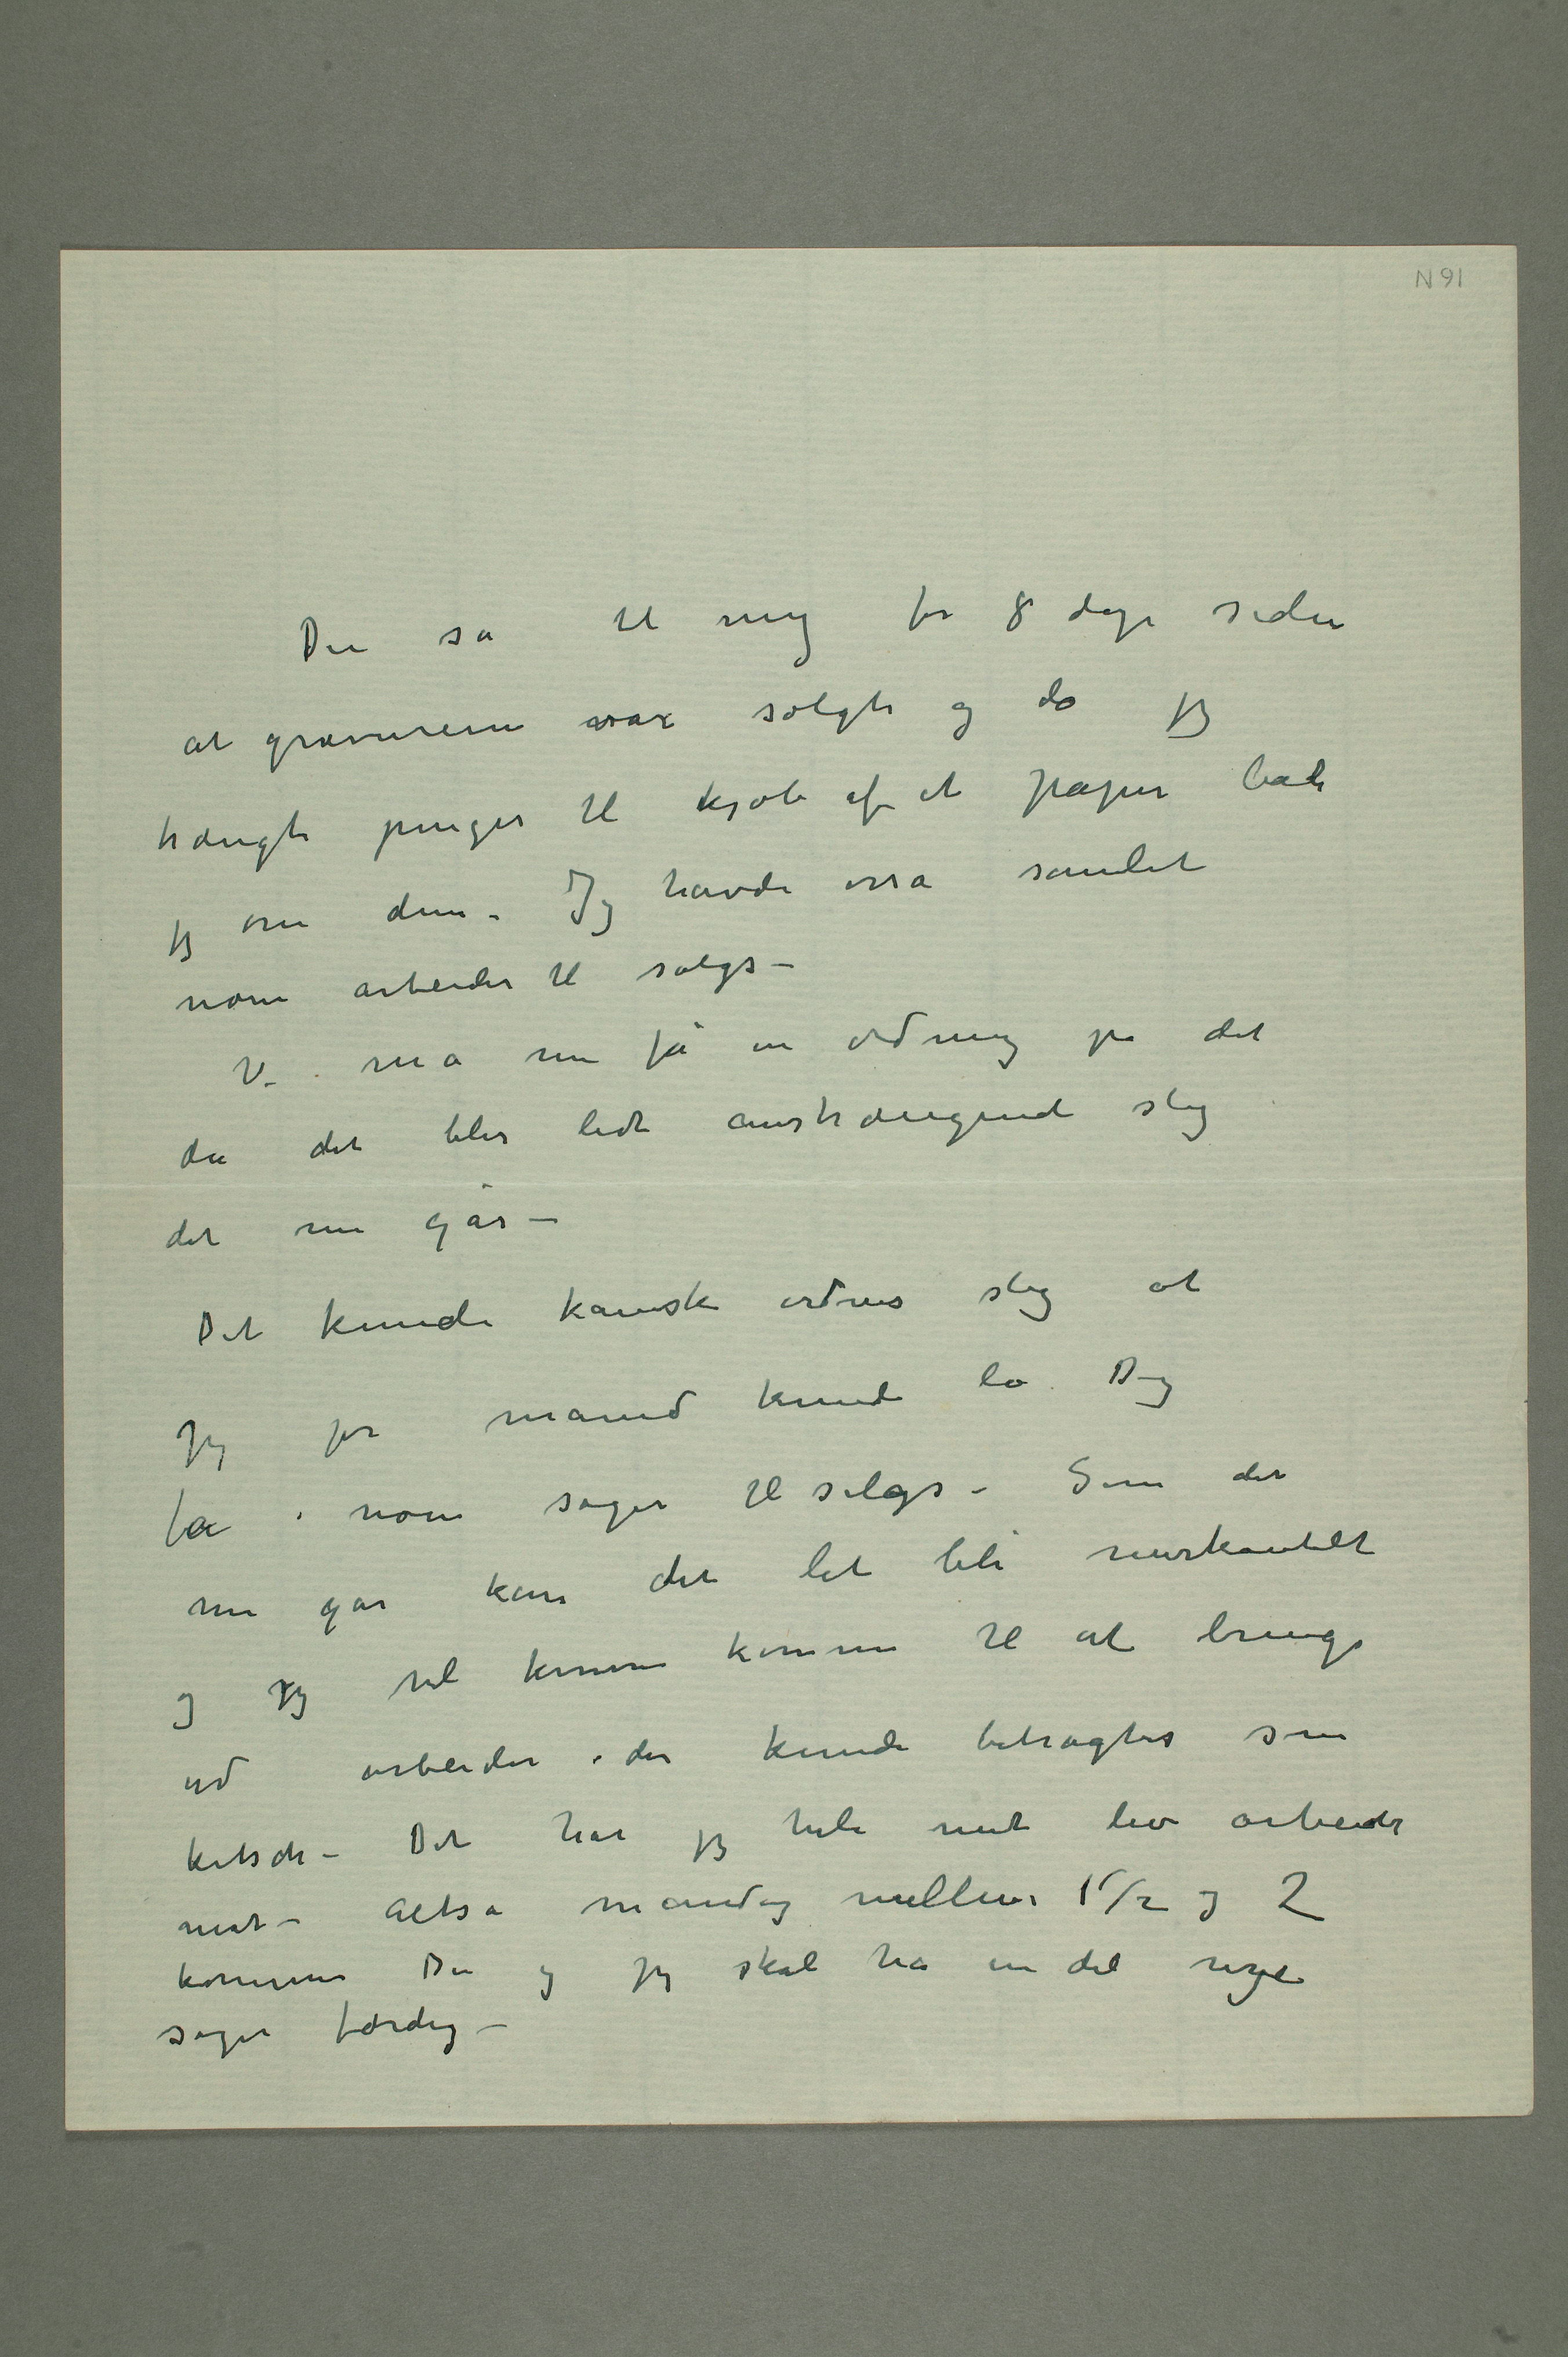 N 91
Du sa til mig for 8 dage siden
at gravurerne var solgte og da jeg
trængte penger til kjøb af et papir bad
jeg om dem – Jeg havde osså samlet
nome arbeider til salgs –
Vi må nu få en ordning på det
da det blir lidt anstrængende slig
det nu går –
Det kunde kanske ordnes slig at
Jeg pr måned kunde la Dig
få nome sager til salgs – Som det
nu går kan det let bli merkantilt
og jeg vil kunne komme til at bringe
ud arbeider der kunde betragtes som
kitsch – Det har jeg hele mit liv arbeidet
mot – Altså mandag mellem 1 1/2 og 2
kommer Du og jeg skal ha en del nye
sager færdig –